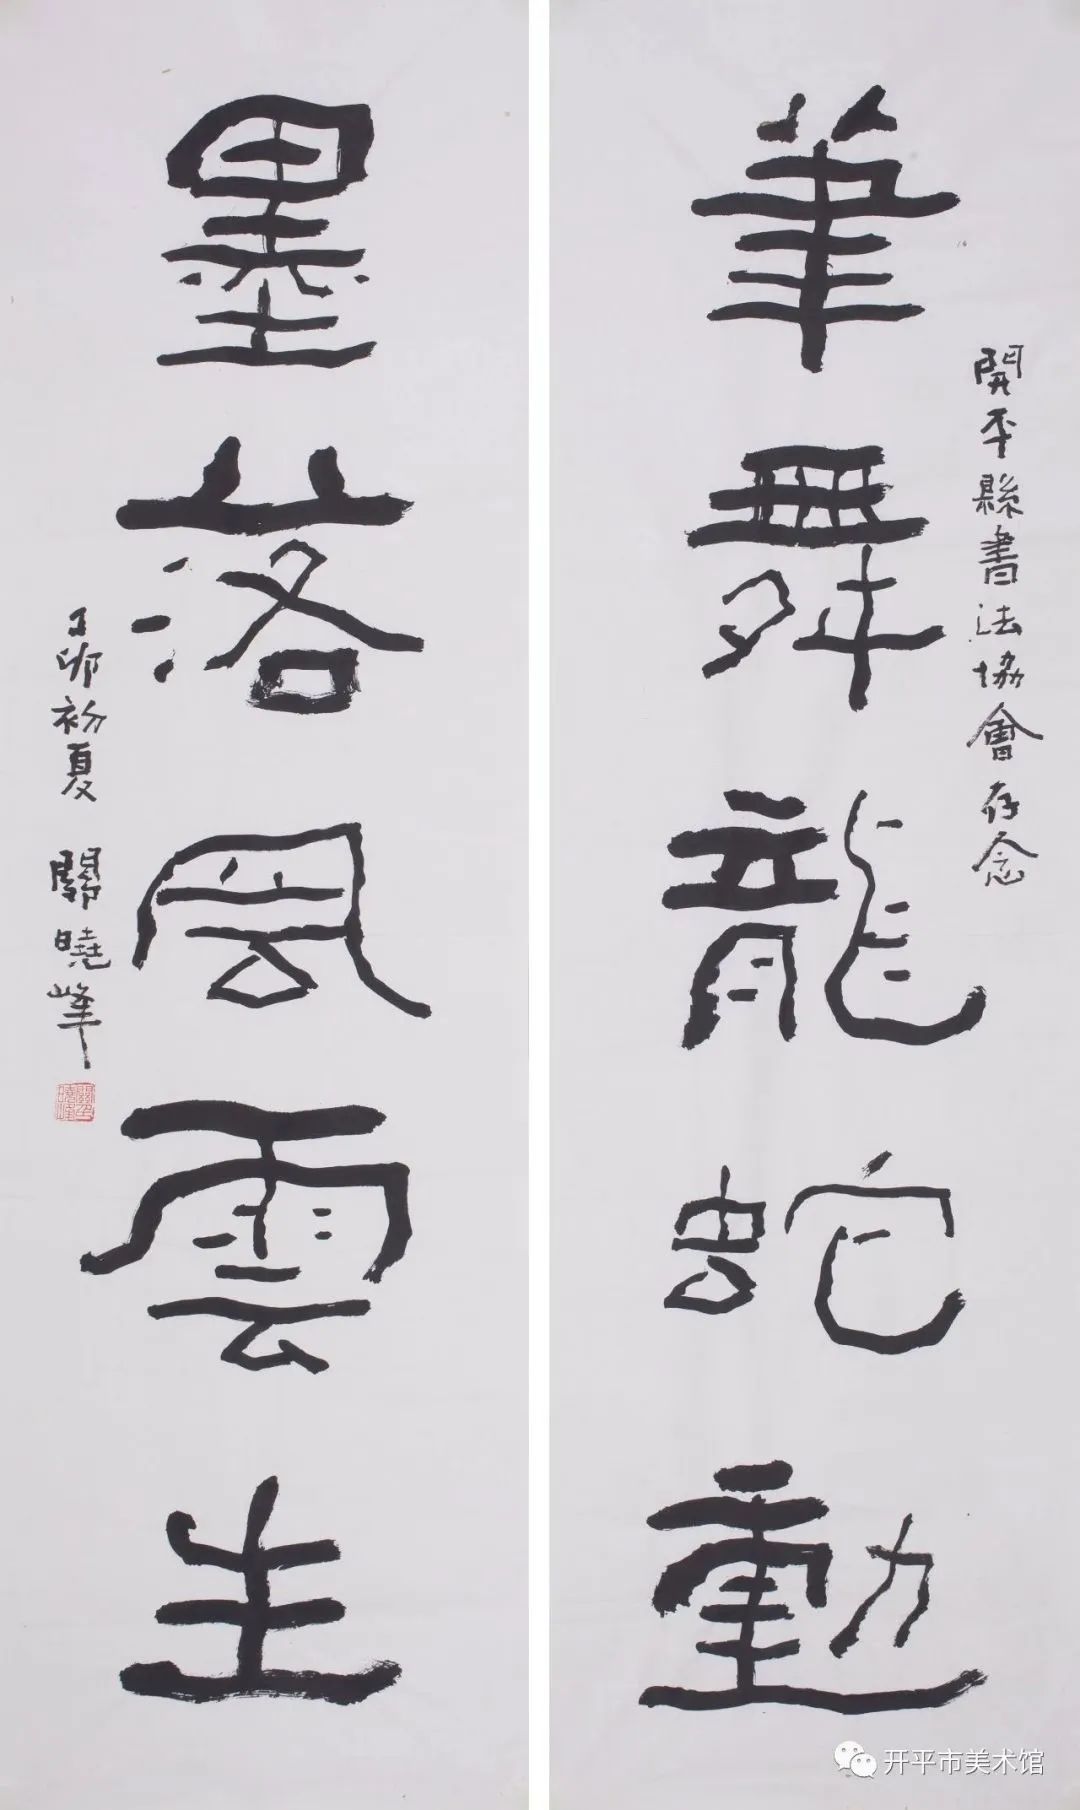 開平縣書法協會存念
筆舞龍蛇動
墨落風雲生
丁卯初夏 關曉峰
开平市美术馆